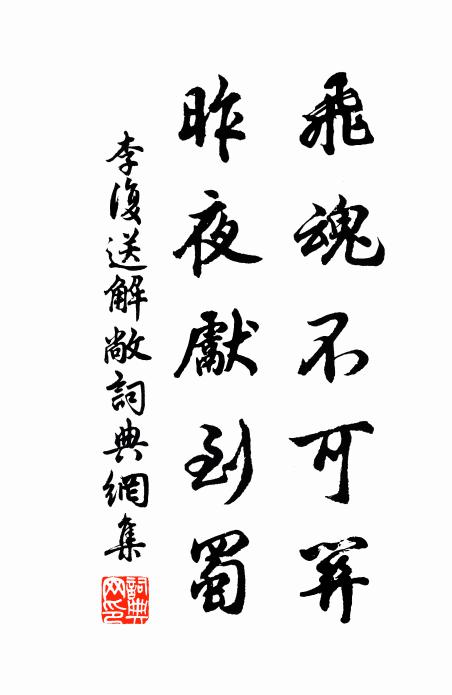 飛魂不可關
昨夜獻到蜀
李復送解敞詞典網集
詞典網印